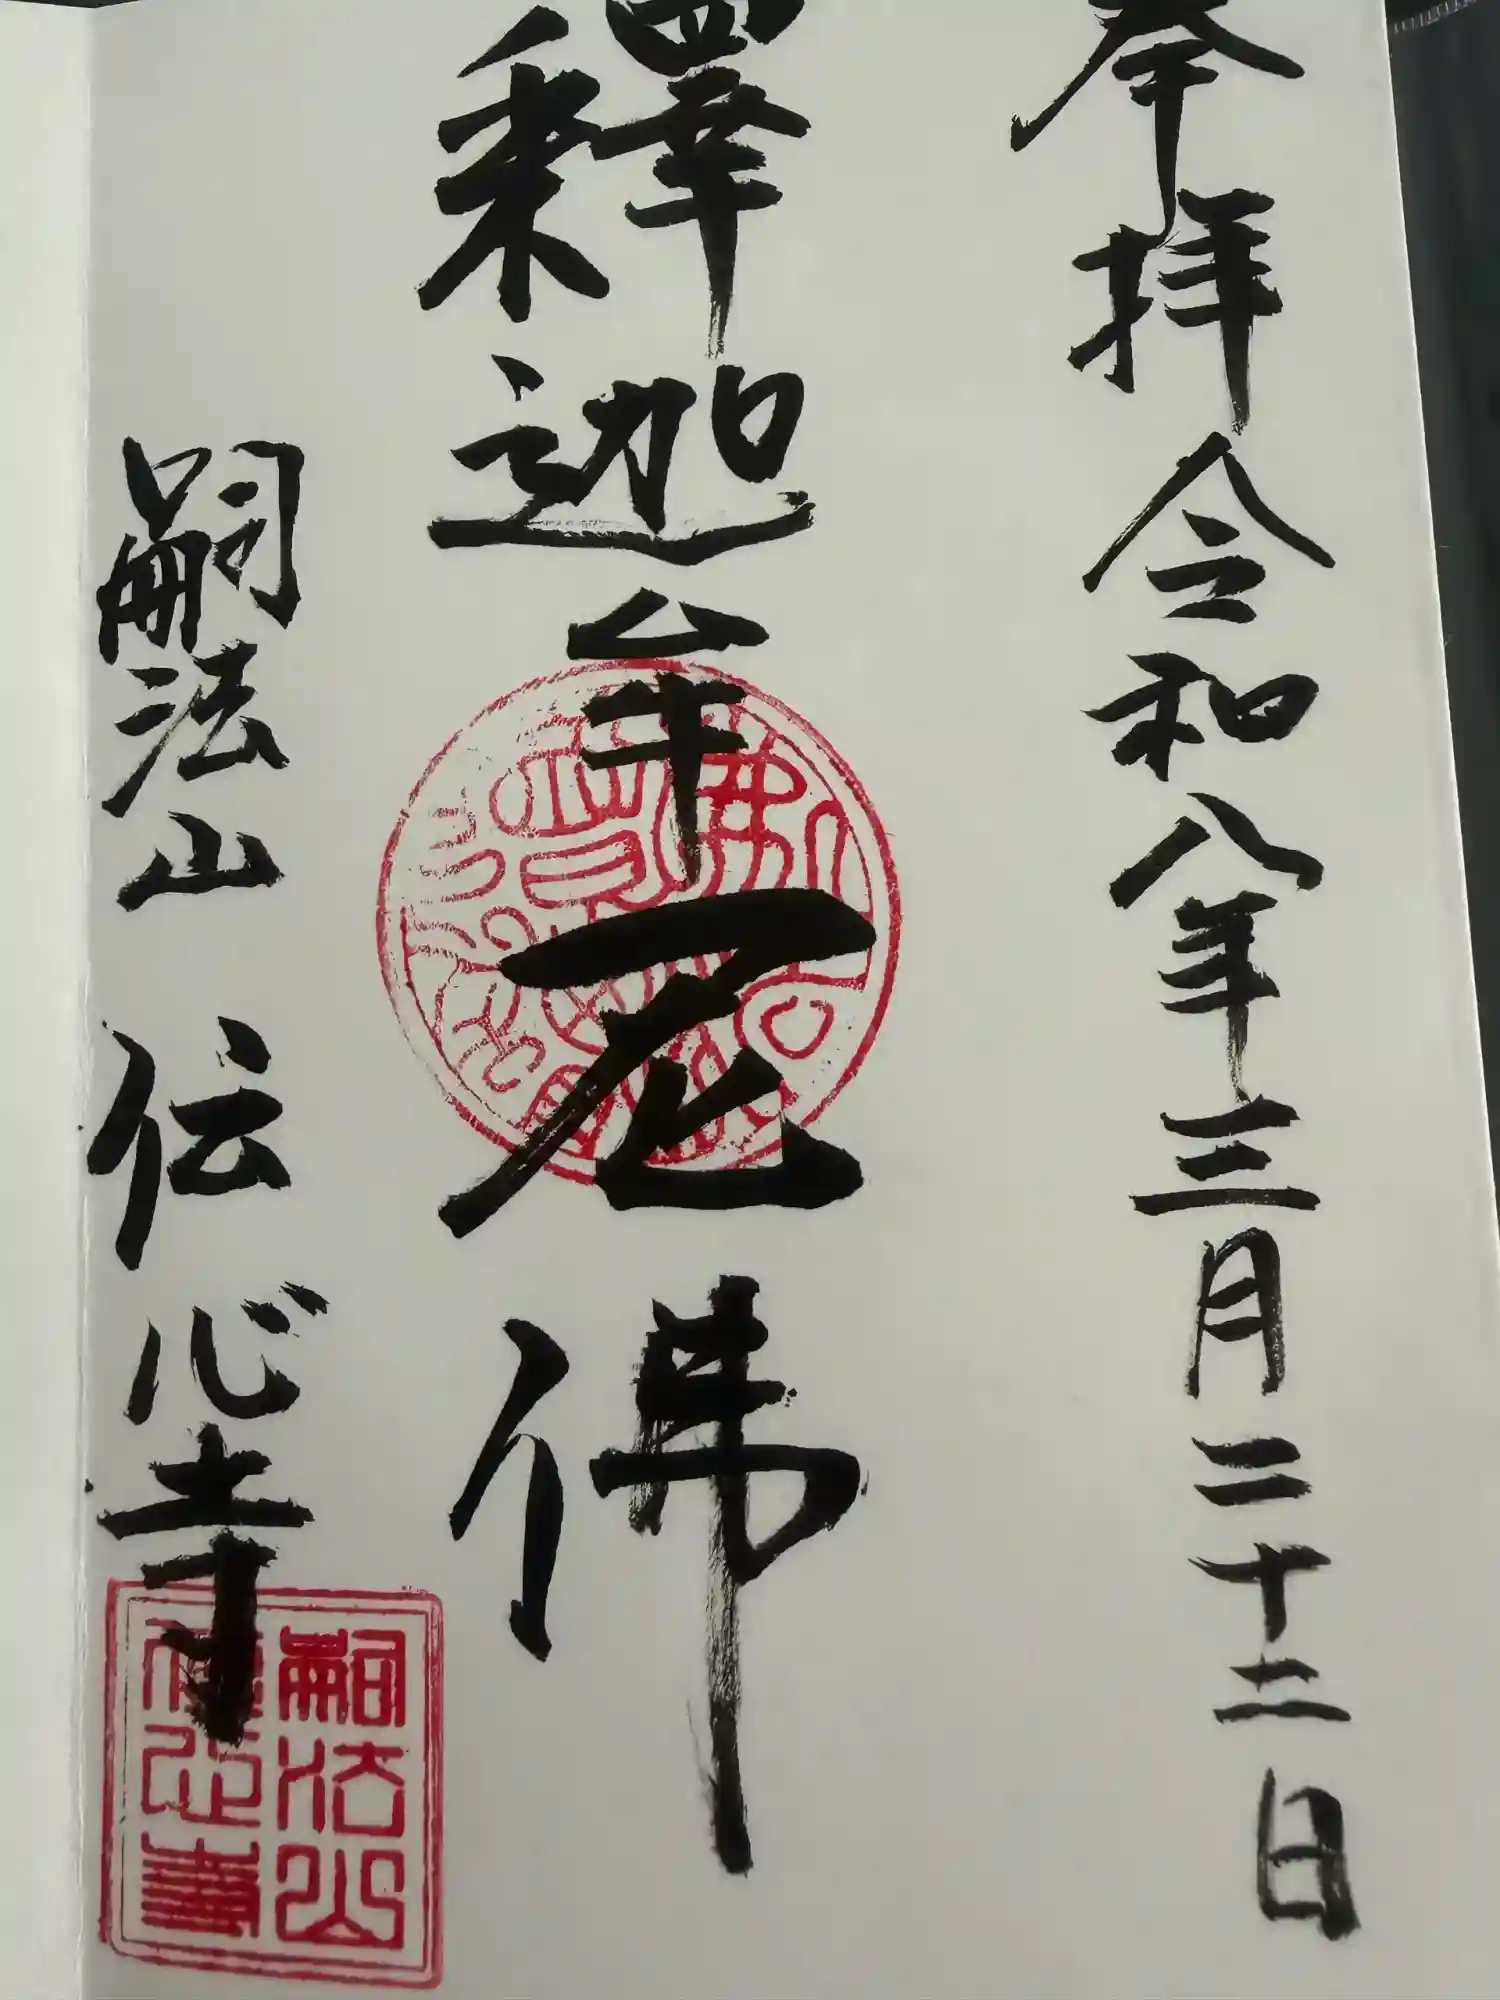 奉拝 令和八年三月二十二日
釋迦牟尼佛
嗣法山 伝心寺
嗣法山
傳心寺